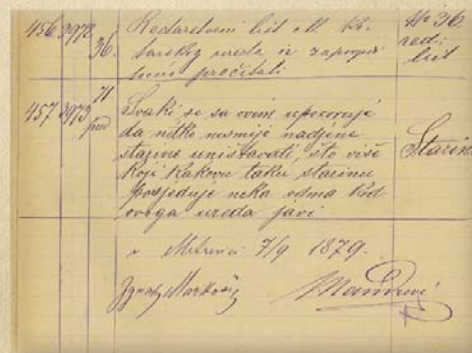 456 3972
36.
Redarstveni list M. Ko-
tarskog ureda iz
pročitati
No 36.
red.
list
457 3973
Svaki se sa ovim upozoruje
da nitko nesmije nadjene
starine uništavati, što više
koji kakovu taku starinu
posjeduje neka odma kod
ovoga ureda javi
Starine
u Mitrovici 7/9 1879.
Ignatz Marković